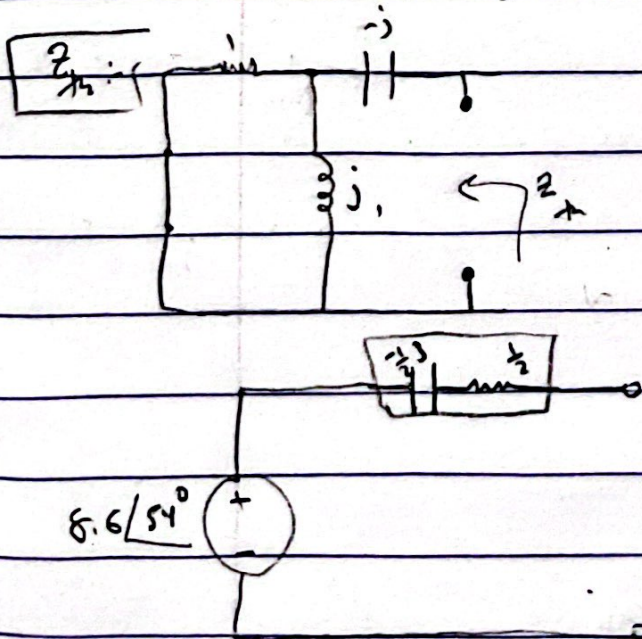 -j
Zth :-
1
j1
Zth
-½j ½
8.6∠54°
+
-